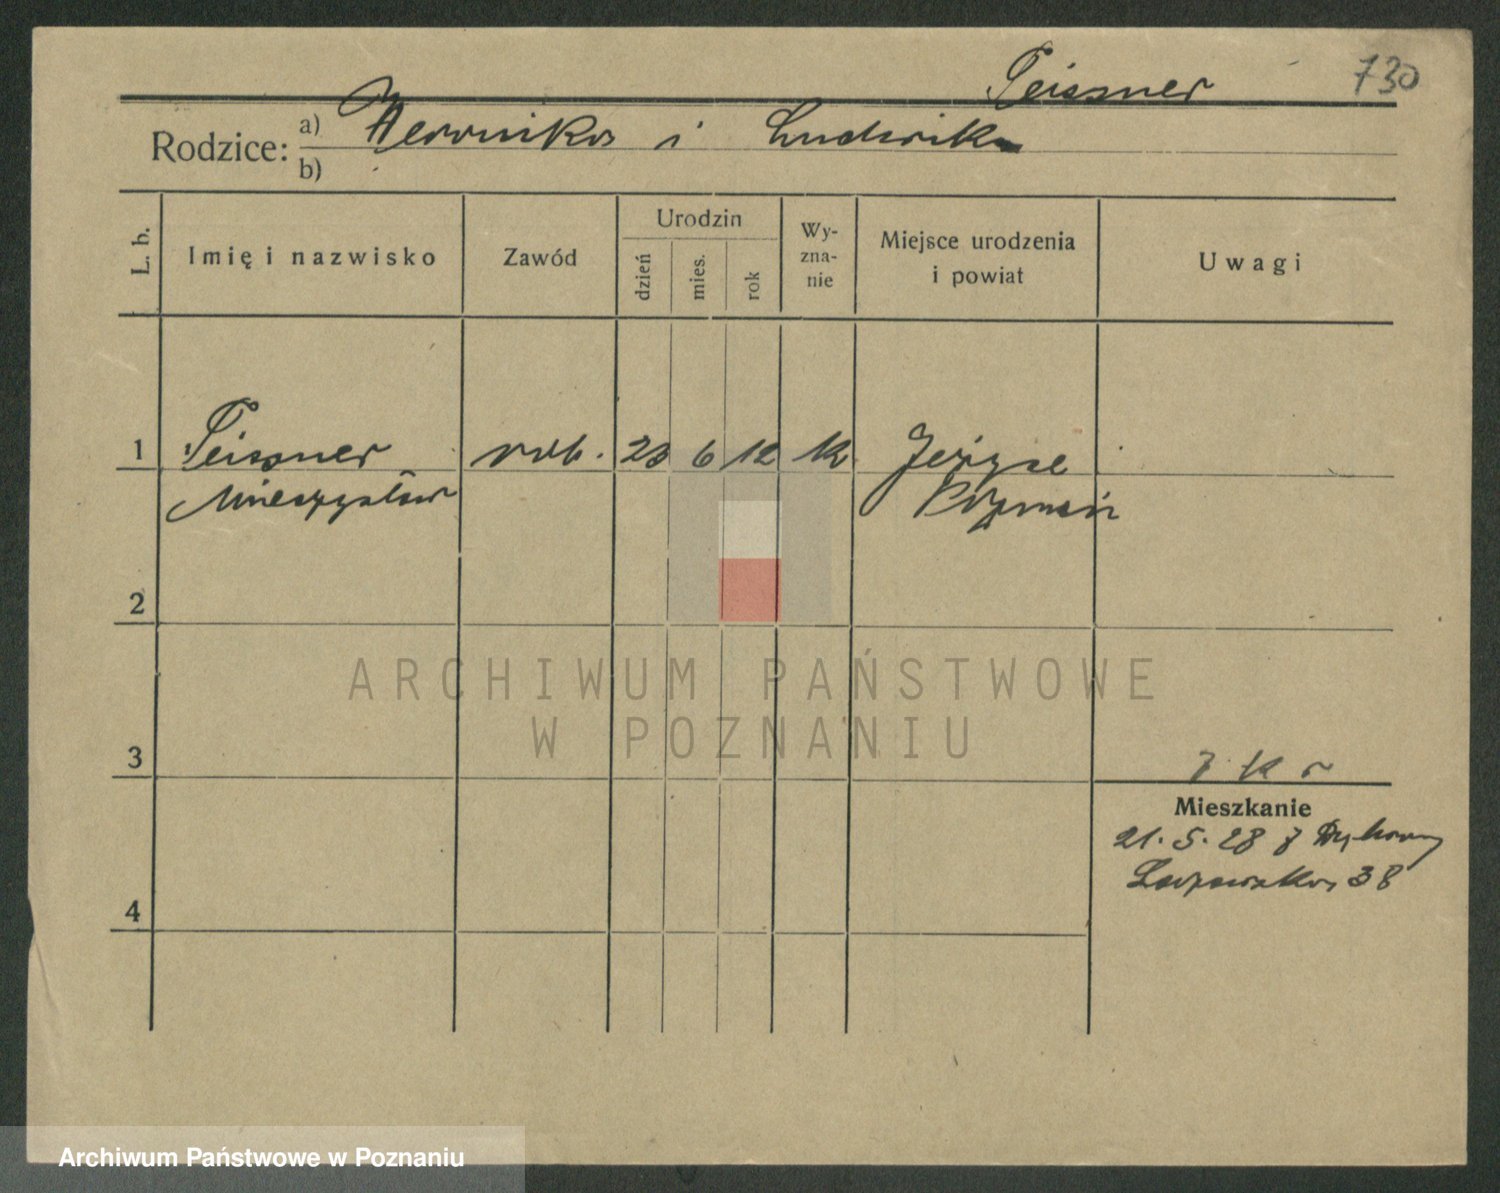 Teissner 730
Rodzice: a) Weronika i Ludwika
b)
L. b. Imię i nazwisko Zawód Urodzin dzień mies. rok Wy-zna-nie Miejsce urodzenia i powiat Uwagi
1 Teissner rob. 23 6 12 k Jeżyce
Mieczysław Poznań
2
ARCHIWUM PAŃSTWOWE
W POZNANIU
3
Mieszkanie
21. 5. 28 z
38
4
Archiwum Państwowe w Poznaniu